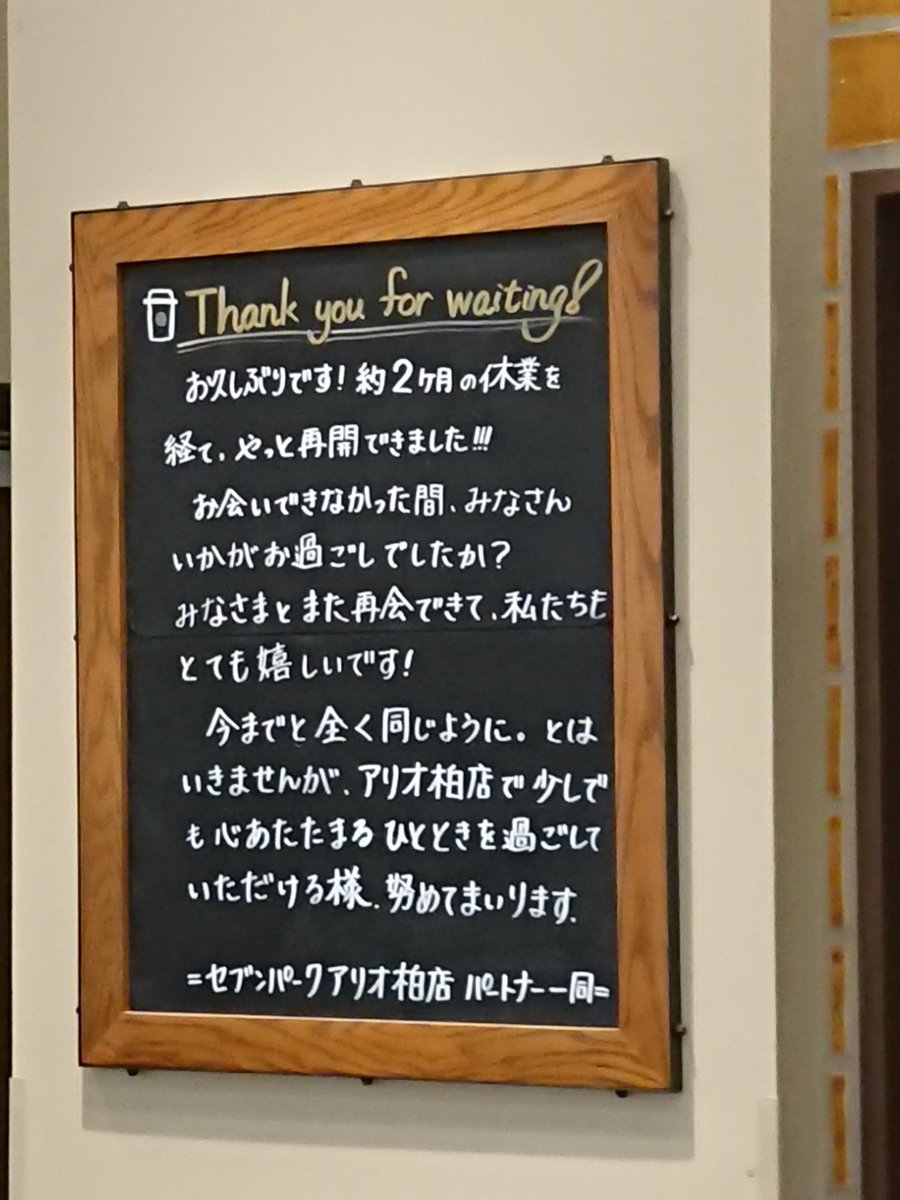 Thank you for waiting!
お久しぶりです！約2ケ月の休業を
経て、やっと再開できました!!!
お会いできなかった間、みなさん
いかがお過ごしでしたか？
みなさまとまた再会できて、私たちも
とても嬉しいです！
今までと全く同じように。とは
いきませんが、アリオ柏店で少しで
も心あたたまるひとときを過ごして
いただける様、努めてまいります。
=セブンパークアリオ柏店 パートナー一同=